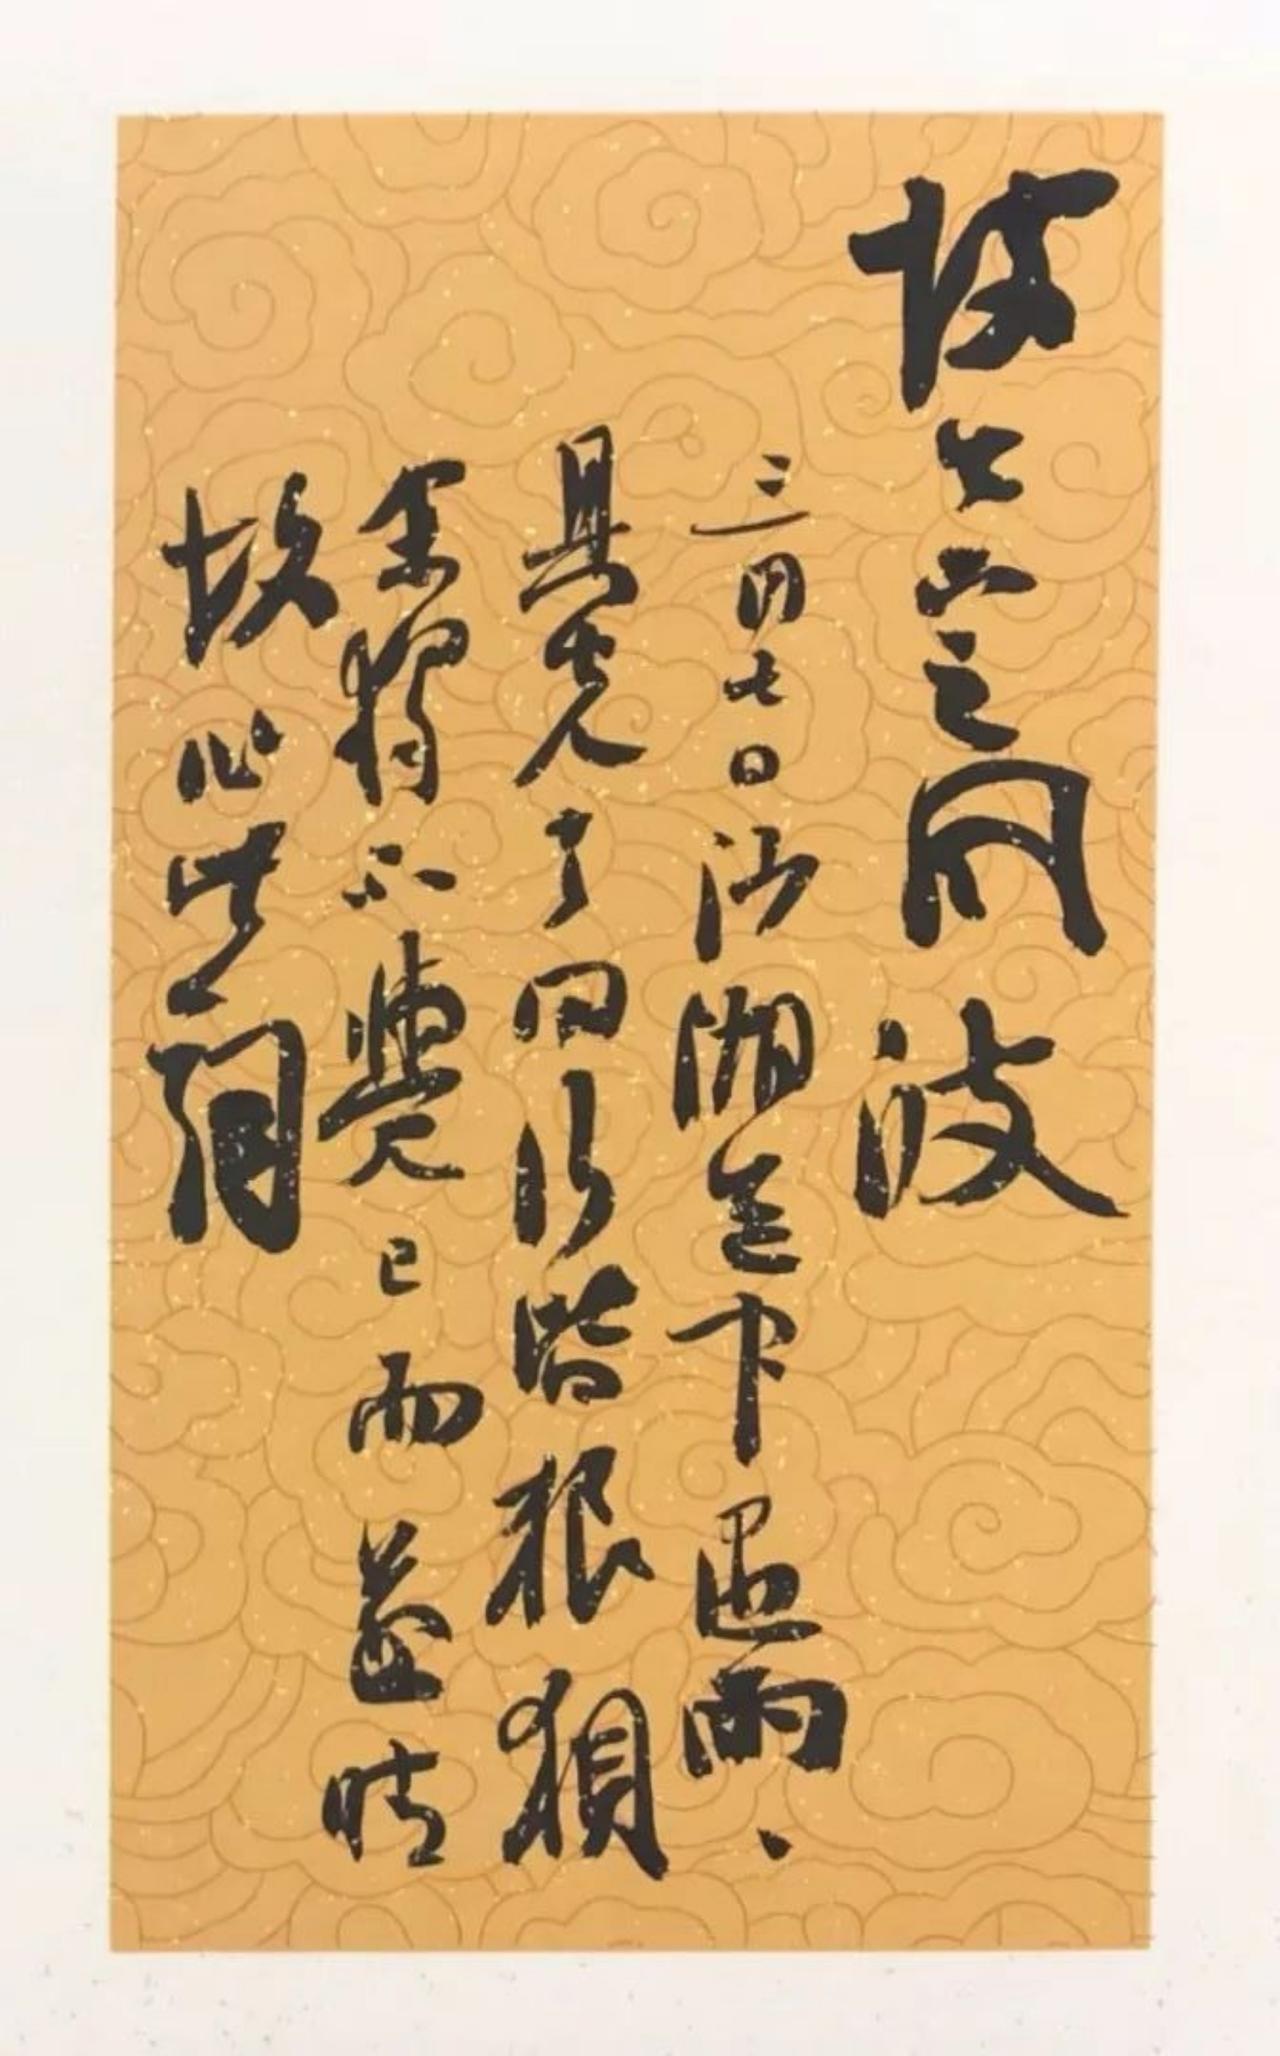 坡公定風波
三月七日沙湖道中遇雨、
具先去同行皆狼狽
余獨不覺已而遂晴
故作此詞